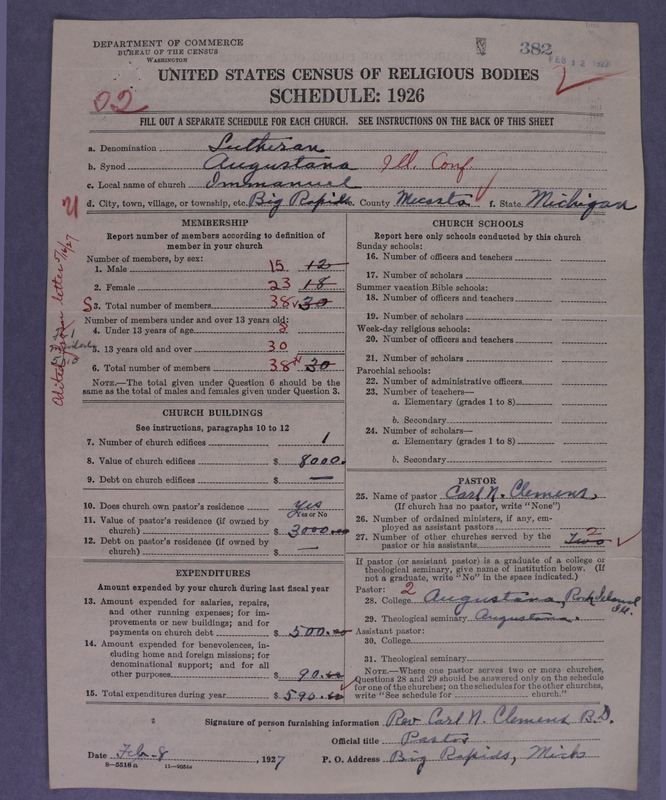 DEPARTMENT OF COMMERCE
BUREAU OF THE CENSUS
WASHINGTON
382
FEB 12 1927
UNITED STATES CENSUS OF RELIGIOUS BODIES
SCHEDULE: 1926
02
FILL OUT A SEPARATE SCHEDULE FOR EACH CHURCH. SEE INSTRUCTIONS ON THE BACK OF THIS SHEET
a. Denomination Lutheran
b. Synod Augustana Ill. Conf
c. Local name of church Immanuel
d. City, town, village, or township, etc. Big Rapids e. County Mecosta f. State Michigan
U
MEMBERSHIP
Report number of members according to definition of
member in your church
Number of members, by sex:
1. Male 15 12
2. Female 23 18
S 3. Total number of members 38 30
Number of members under and over 13 years old:
4. Under 13 years of age
5. 13 years old and over 30
6. Total number of members 38 30
NOTE.—The total given under Question 6 should be the
same as the total of males and females given under Question 3.
letter 5/6/27
CHURCH BUILDINGS
See instructions, paragraphs 10 to 12
7. Number of church edifices 1
8. Value of church edifices $ 8000.
9. Debt on church edifices $ —
10. Does church own pastor's residence yes
Yes or No
11. Value of pastor's residence (if owned by
church) $ 3000.00
12. Debt on pastor's residence (if owned by
church) $ —
EXPENDITURES
Amount expended by your church during last fiscal year
13. Amount expended for salaries, repairs,
and other running expenses; for im-
provements or new buildings; and for
payments on church debt $ 500.00
14. Amount expended for benevolences, in-
cluding home and foreign missions; for
denominational support; and for all
other purposes $ 90.00
15. Total expenditures during year $ 590.00
CHURCH SCHOOLS
Report here only schools conducted by this church
Sunday schools:
16. Number of officers and teachers
17. Number of scholars
Summer vacation Bible schools:
18. Number of officers and teachers
19. Number of scholars
Week-day religious schools:
20. Number of officers and teachers
21. Number of scholars
Parochial schools:
22. Number of administrative officers
23. Number of teachers—
a. Elementary (grades 1 to 8)
b. Secondary
24. Number of scholars—
a. Elementary (grades 1 to 8)
b. Secondary
PASTOR
25. Name of pastor Carl N. Clemens
(If church has no pastor, write "None")
26. Number of ordained ministers, if any, em-
ployed as assistant pastors
27. Number of other churches served by the
pastor or his assistants Two 2
If pastor (or assistant pastor) is a graduate of a college or
theological seminary, give name of institution below. (If
not a graduate, write "No" in the space indicated.)
Pastor: 2
28. College Augustana, Rock Island Ill.
29. Theological seminary Augustana.
Assistant pastor:
30. College
31. Theological seminary
NOTE.—Where one pastor serves two or more churches,
Questions 28 and 29 should be answered only on the schedule
for one of the churches; on the schedules for the other churches,
write "See schedule for church."
Signature of person furnishing information Rev Carl N. Clemens B.D.
Official title Pastor
Date Feb-8, 1927 P. O. Address Big Rapids, Mich
8—5516a 11—9554a